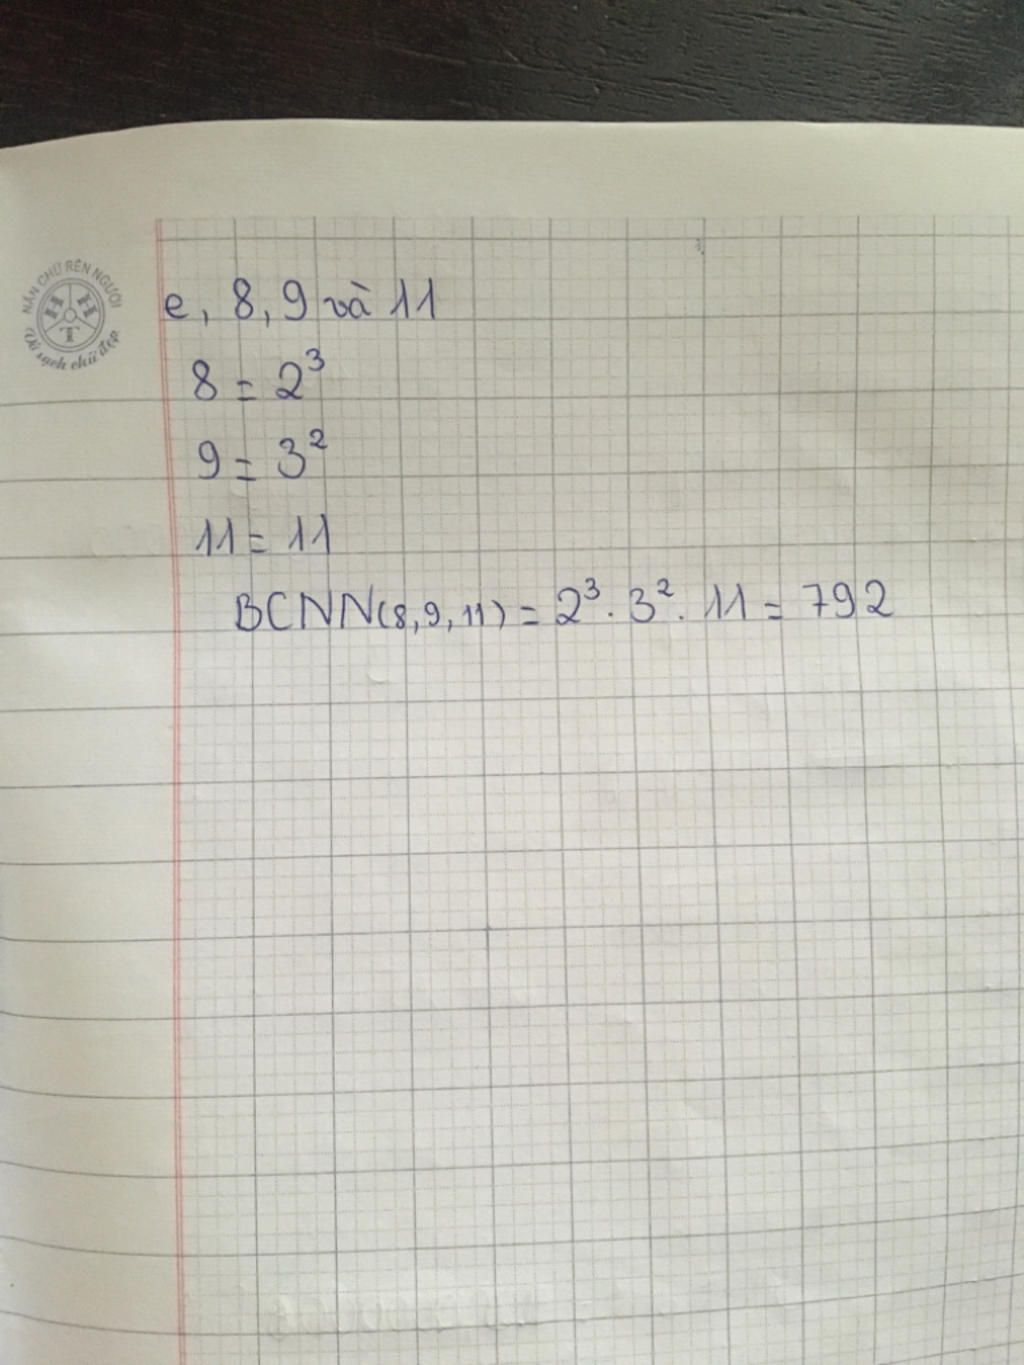 NẮN CHỮ RÈN NGƯỜI
H H T
Vở sạch chữ đẹp
e, 8, 9 và 11
8 = 2³
9 = 3²
11 = 11
BCNN(8, 9, 11) = 2³ . 3² . 11 = 792